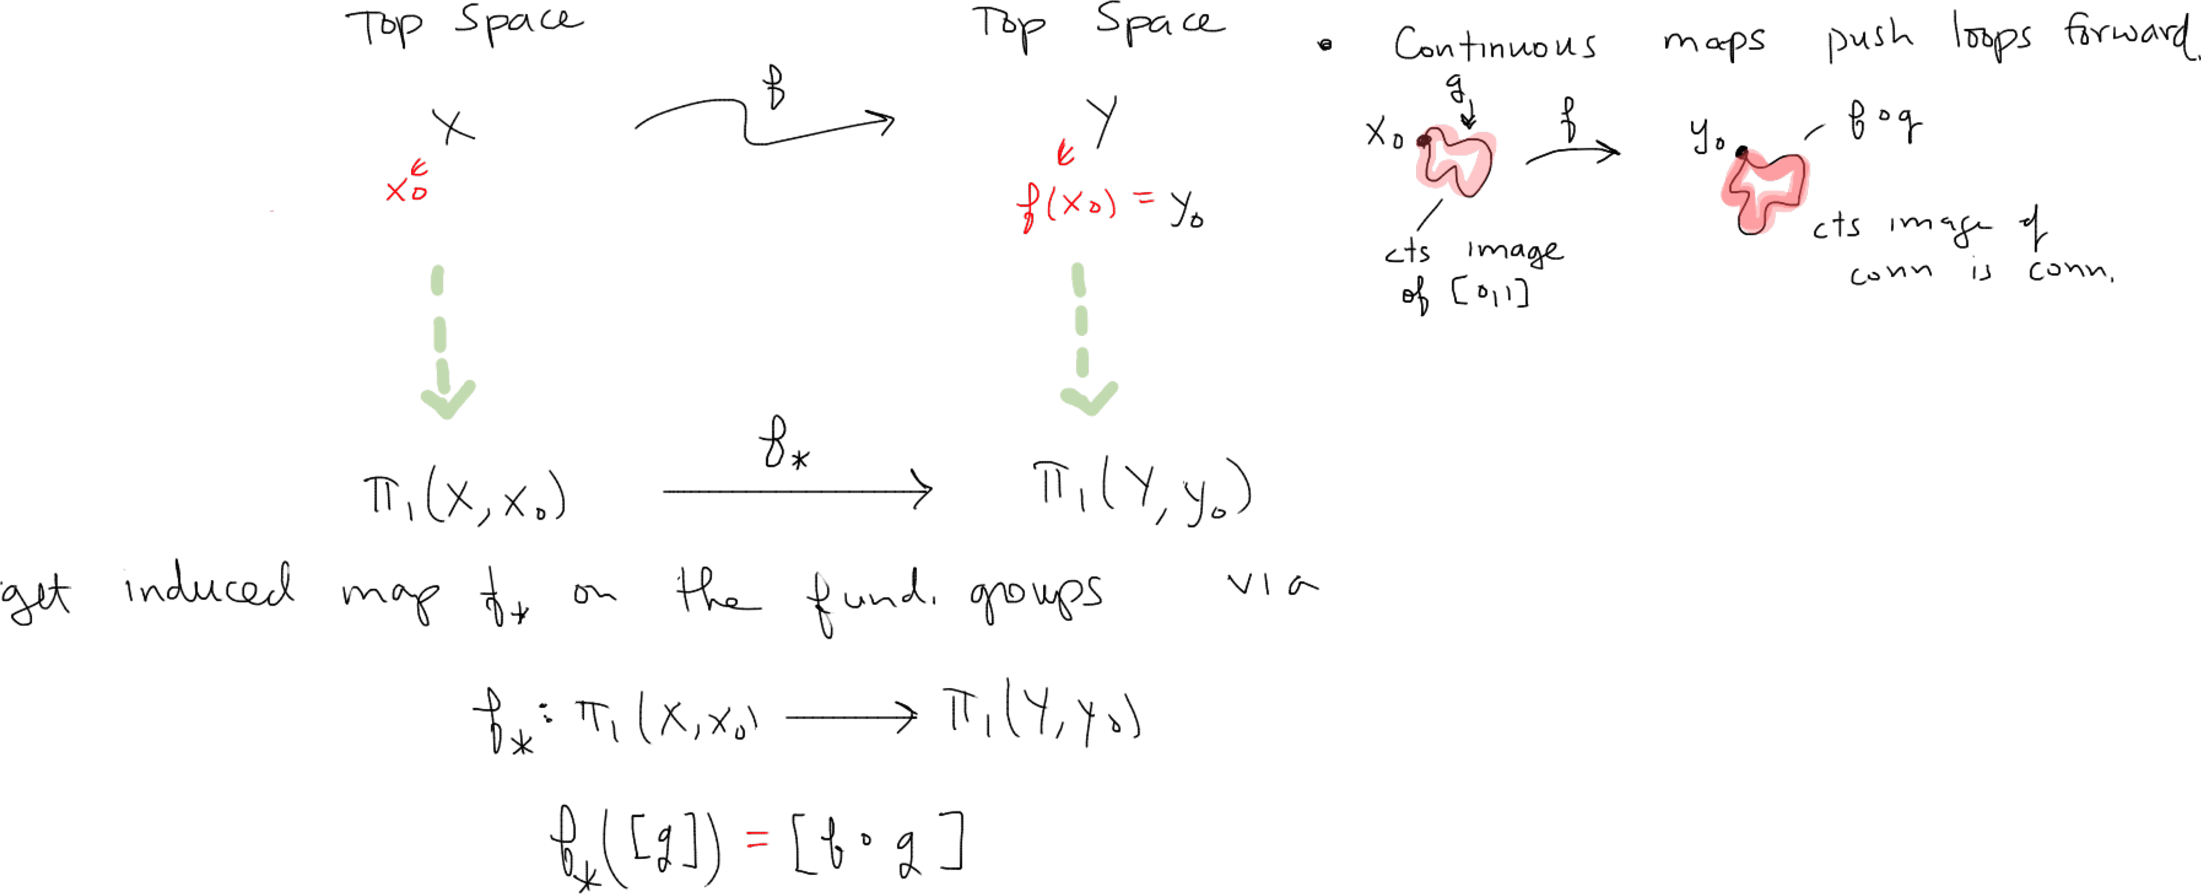 Top Space
Top Space
• Continuous maps push loops forward.
X
f
Y
x₀
f(x₀) = y₀
g
x₀
f
y₀
f∘g
cts image
of [0,1]
cts image of
conn is conn.
π₁(X, x₀)
f_*
π₁(Y, y₀)
get induced map f_* on the fund. groups via
f_* : π₁(X, x₀) ⟶ π₁(Y, y₀)
f_*([g]) = [f∘g]